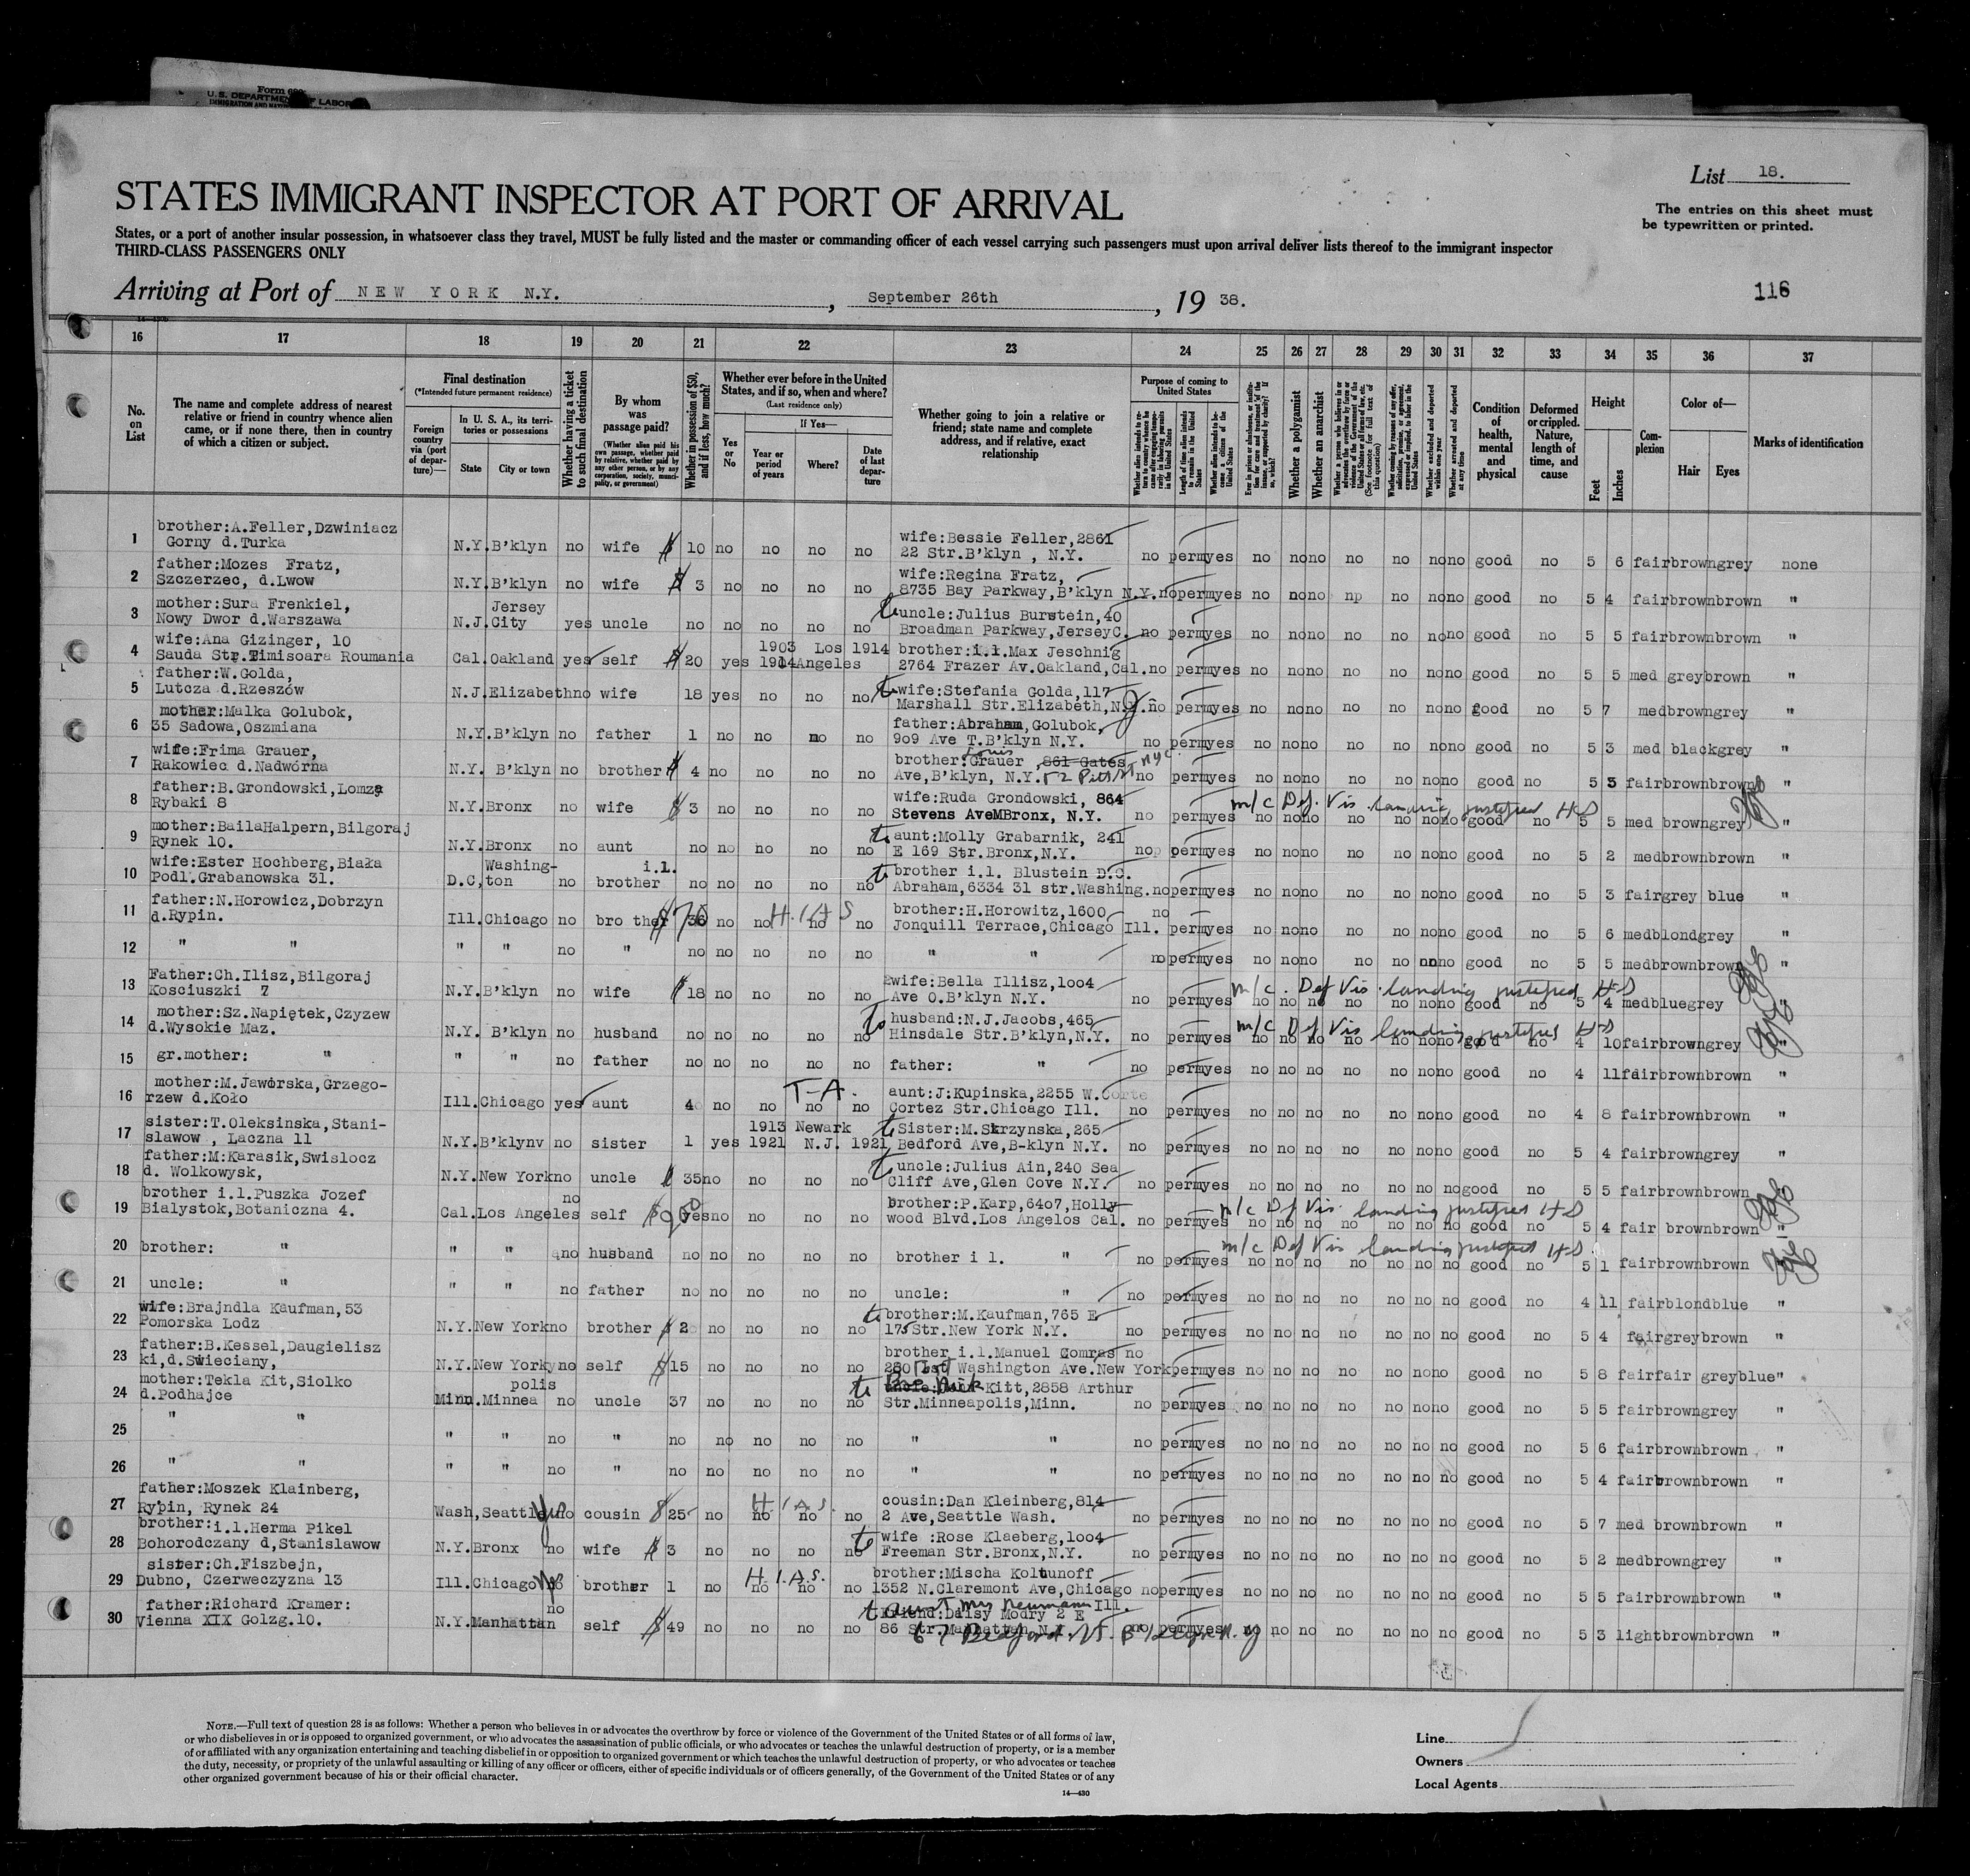 Form
U.S. DEPARTMENT OF LABOR
List 18.
STATES IMMIGRANT INSPECTOR AT PORT OF ARRIVAL
The entries on this sheet must
be typewritten or printed.
States, or a port of another insular possession, in whatsoever class they travel, MUST be fully listed and the master or commanding officer of each vessel carrying such passengers must upon arrival deliver lists thereof to the immigrant inspector
THIRD-CLASS PASSENGERS ONLY
Arriving at Port of NEW YORK N.Y., September 26th, 19 38.
116
16 17 18 19 20 21 22 23 24 25 26 27 28 29 30 31 32 33 34 35 36 37
No. on List
The name and complete address of nearest relative or friend in country whence alien came, or if none there, then in country of which a citizen or subject.
Final destination
(*Intended future permanent residence)
Foreign country via (port of departure)—
In U. S. A., its territories or possessions
State
City or town
Whether having a ticket to such final destination
By whom was passage paid?
(Whether alien paid his own passage, whether paid by relative, whether paid by any other person, or by any corporation, society, municipality, or government)
Whether in possession of $50, and if less, how much?
Whether ever before in the United States, and if so, when and where?
(Last residence only)
Yes or No
If Yes—
Year or period of years
Where?
Date of last departure
Whether going to join a relative or friend; state name and complete address, and if relative, exact relationship
Purpose of coming to United States
Length of time alien intends to remain in the United States
Whether alien intends to become a citizen of the United States
Whether a polygamist
Whether an anarchist
Whether excluded and deported within one year
Whether arrested and deported at any time
Condition of health, mental and physical
Deformed or crippled. Nature, length of time, and cause
Height
Feet
Inches
Complexion
Color of—
Hair
Eyes
Marks of identification
1 brother:A.Feller,Dzwiniacz
Gorny d.Turka N.Y. B'klyn no wife $ 10 no no no no wife:Bessie Feller,2861
22 Str.B'klyn , N.Y. no perm yes no no no no no no no good no 5 6 fair brown grey none
2 father:Mozes Fratz,
Szczerzec, d.Lwow N.Y. B'klyn no wife $ 3 no no no no wife:Regina Fratz,
8735 Bay Parkway,B'klyn N.Y. no perm yes no no no np no no no good no 5 4 fair brown brown "
3 mother:Sura Frenkiel,
Nowy Dwor d.Warszawa N.J. Jersey City yes uncle no no no no no to uncle:Julius Burstein,40
Broadman Parkway,JerseyC. no perm yes no no no no no no no good no 5 5 fair brown brown "
4 wife:Ana Gizinger, 10
Sauda Str.Timisoara Roumania Cal. Oakland yes self $ 20 yes 1903 1904 Los Angeles 1914 brother:i.l.Max Jeschnig
2764 Frazer Av.Oakland,Cal. no perm yes no no no no no no no good no 5 5 med grey brown "
5 father:W.Golda,
Lutcza d.Rzeszów N.J. Elizabeth no wife 18 yes no no no to wife:Stefania Golda,117
Marshall Str.Elizabeth,N.J. no perm yes no no no no no no no good no 5 7 med brown grey "
6 mother:Malka Golubok,
35 Sadowa,Oszmiana N.Y. B'klyn no father 1 no no no no father:Abraham,Golubok,
909 Ave T.B'klyn N.Y. no perm yes no no no no no no no good no 5 3 med black grey "
7 wife:Frima Grauer,
Rakowiec d.Nadwórna N.Y. B'klyn no brother $ 4 no no no no brother:Louis Grauer ,861 Gates
Ave,B'klyn, N.Y. 52 Pitt St NYC no perm yes no no no no no no no good no 5 3 fair brown brown "
8 father:B.Grondowski,Lomza
Rybaki 8 N.Y. Bronx no wife $ 3 no no no no wife:Ruda Grondowski, 864
Stevens AveMBronx, N.Y. no perm yes m/c Def. Vis. landing justified HS no no no no no no no good no 5 5 med brown grey "
9 mother:BailaHalpern,Bilgoraj
Rynek 10. N.Y. Bronx no aunt no no no no no to aunt:Molly Grabarnik, 241
E 169 Str.Bronx,N.Y. no perm yes no no no no no no no good no 5 2 med brown brown "
10 wife:Ester Hochberg,Biała
Podl.Grabanowska 31. D.C, Washing-ton no i.l. brother no no no no no to brother i.l. Blustein D.C.
Abraham,6334 31 str.Washing. no perm yes no no no no no no no good no 5 3 fair grey blue "
11 father:N.Horowicz,Dobrzyn
d.Rypin. Ill. Chicago no bro ther $70 36 no no H.I.A.S no no brother:H.Horowitz,1600
Jonquill Terrace,Chicago Ill. no perm yes no no no no no no no good no 5 6 med blond grey "
12 " " " " no " no no no no no " " no perm yes no no no no no no no good no 5 5 med brown brown "
13 Father:Ch.Ilisz,Bilgoraj
Kosciuszki 7 N.Y. B'klyn no wife $ 18 no no no no wife:Bella Illisz,1oo4
Ave O.B'klyn N.Y. no perm yes m/c . Def Vis. landing justified HS no no no no no no no good no 5 4 med blue grey "
14 mother:Sz.Napiętek,Czyzew
d.Wysokie Maz. N.Y. B'klyn no husband no no no no no To husband:N.J.Jacobs,465
Hinsdale Str.B'klyn,N.Y. no perm yes m/c Def Vis landing justified HS no no no no no no no good no 4 10 fair brown grey "
15 gr.mother: " " " no father no no no no no father: " no perm yes no no no no no no no good no 4 11 fair brown brown "
16 mother:M.Jaworska,Grzego-
rzew d.Koło Ill. Chicago yes aunt 40 no no T-A. no no aunt:J:Kupinska,2255 W.Corte
Cortez Str.Chicago Ill. no perm yes no no no no no no no good no 4 8 fair brown brown "
17 sister:T.Oleksinska,Stani-
slawow , Laczna 11 N.Y. B'klynv no sister 1 yes 1913 1921 Newark N.J. 1921 to Sister:M.Skrzynska,265
Bedford Ave,B-klyn N.Y. no perm yes no no no no no no no good no 5 4 fair brown grey "
18 father:M:Karasik,Swislocz
d. Wolkowysk, N.Y. New York no uncle $ 35 no no no no to uncle:Julius Ain,240 Sea
Cliff Ave,Glen Cove N.Y. no perm yes no no no no no no no good no 5 5 fair brown brown "
19 brother i.l.Puszka Jozef
Bialystok,Botaniczna 4. Cal. Los Angeles no self yes no no no no brother:P.Karp,6407,Holly-
wood Blvd.Los Angelos Cal. no perm yes m/c Def Vis. landing justified HS no no no no no no no good no 5 4 fair brown brown "
20 brother: " " " no husband no no no no no brother i l. " no perm yes m/c Def Vis landing justified HS no no no no no no no good no 5 1 fair brown brown "
21 uncle: " " " no father no no no no no uncle: " no perm yes no no no no no no no good no 4 11 fair blond blue "
22 wife:Brajndla Kaufman,53
Pomorska Lodz N.Y. New York no brother $ 2 no no no no to brother:M.Kaufman,765 E
175 Str.New York N.Y. no perm yes no no no no no no no good no 5 4 fair grey brown "
23 father:B.Kessel,Daugielisz
ki,d.Swieciany, N.Y. New York no self $ 15 no no no no brother i.l.Manuel Comras no
260 Fort Washington Ave.New York perm yes no no no no no no no good no 5 8 fair fair grey blue "
24 mother:Tekla Kit,Siolko
d.Podhajce Minn. Minnea polis no uncle 37 no no no no to Kitt,2858 Arthur
Str.Minneapolis,Minn. no perm yes no no no no no no no good no 5 5 fair brown grey "
25 " " " " no " no no no no no " " no perm yes no no no no no no no good no 5 6 fair brown brown "
26 " " " " no " no no no no no " " no perm yes no no no no no no no good no 5 4 fair brown brown "
27 father:Moszek Klainberg,
Rypin, Rynek 24 Wash, Seattle no cousin $ 25 no H.I.A.S. no no no cousin:Dan Kleinberg,814
2 Ave,Seattle Wash. no perm yes no no no no no no no good no 5 7 med brown brown "
28 brother:i.l.Herma Pikel
Bohorodczany d,Stanislawow N.Y. Bronx no wife $ 3 no no no no to wife :Rose Klaeberg,1oo4
Freeman Str.Bronx,N.Y. no perm yes no no no no no no no good no 5 2 med brown grey "
29 sister:Ch.Fiszbejn,
Dubno, Czerweczyzna 13 Ill. Chicago no brother 1 no H.I.A.S. no no no brother:Mischa Koltunoff
1352 N.Claremont Ave,Chicago Ill. no perm yes no no no no no no no good no 5 5 fair brown brown "
30 father:Richard Kramer:
Vienna XIX Golzg.10. N.Y. Manhattan no self $ 49 no no no no to aunt Mrs Neumann
friend:Daisy Modry 2 E
86 Str.Manhattan,N.Y. 67 Bedford St. no perm yes no no no no no no no good no 5 3 light brown brown "
NOTE.—Full text of question 28 is as follows: Whether a person who believes in or advocates the overthrow by force or violence of the Government of the United States or of all forms of law,
or who disbelieves in or is opposed to organized government, or who advocates the assassination of public officials, or who advocates or teaches the unlawful destruction of property, or is a member
of or affiliated with any organization entertaining and teaching disbelief in or opposition to organized government or which teaches the unlawful destruction of property, or who advocates or teaches
the duty, necessity, or propriety of the unlawful assaulting or killing of any officer or officers, either of specific individuals or of officers generally, of the Government of the United States or of any
other organized government because of his or their official character.
14—430
Line
Owners
Local Agents